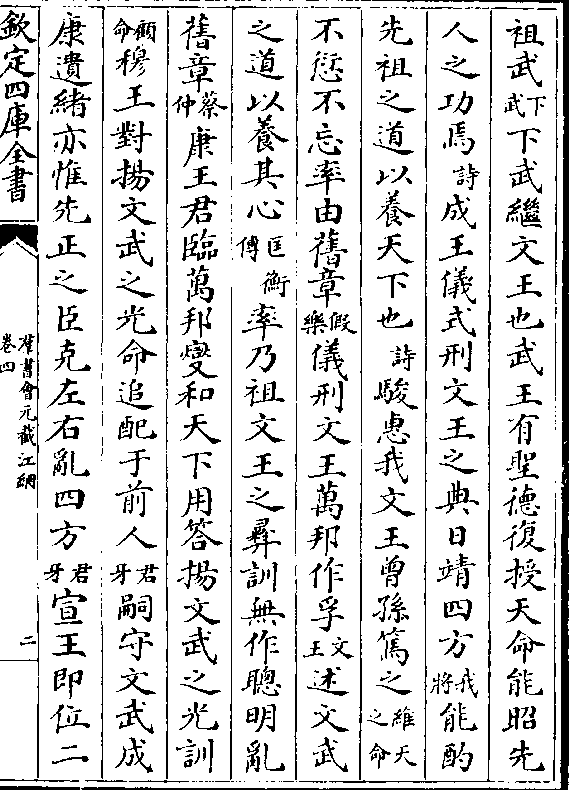 祖武下武下武繼文王也武王有聖德復授天命能昭先
人之功焉詩成王儀式刑文王之典日靖四方我將能酌
先祖之道以養天下也詩駿惠我文王曾孫篤之維天之命
不愆不忘率由舊章假樂儀刑文王萬邦作孚文王述文武
之道以養其心匡衡傳率乃祖文王之彝訓無作聰明亂
舊章蔡仲康王君臨萬邦燮和天下用答揚文武之光訓
顧命穆王對揚文武之光命追配于前人君牙嗣守文武成
康遺緒亦惟先正之臣克左右亂四方君牙宣王即位二
欽定四庫全書
羣書會元截江網
卷四
二